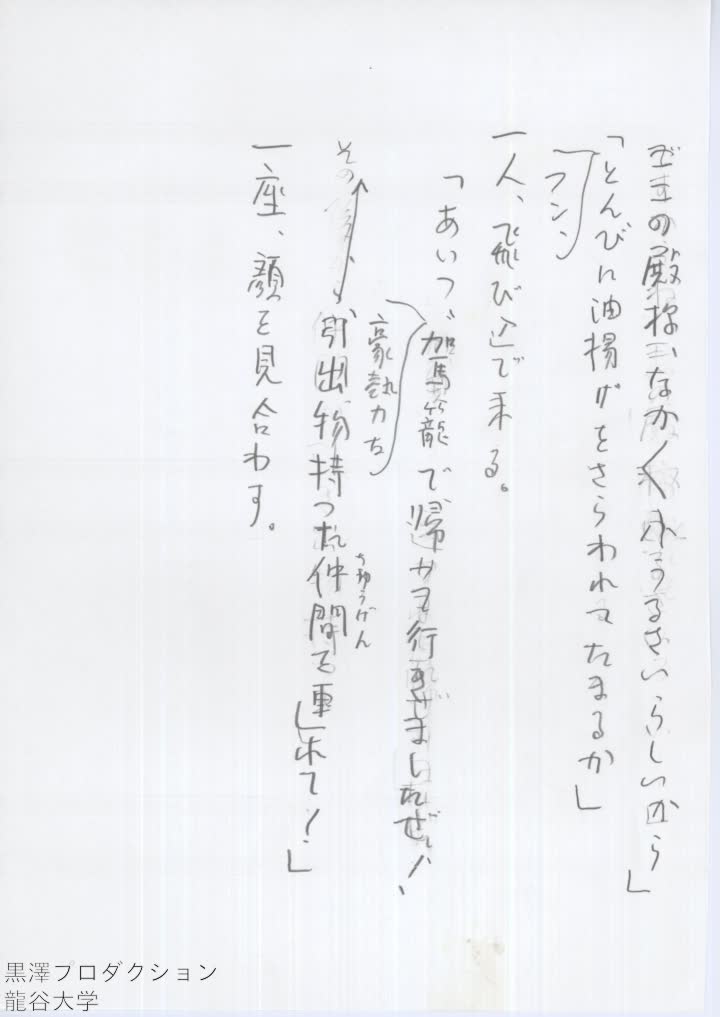 の殿様はなか〱うるさいらしいから」
「とんびに油揚げをさらわれてたまるか」
フン、
一人、飛び込で来る。
「あいつ、駕籠で帰かって行きざましたぜ！、
豪勢な
その
引出物持った仲間を連れて！」
ちゅうげん
一座、顔を見合わす。
黒澤プロダクション
龍谷大学